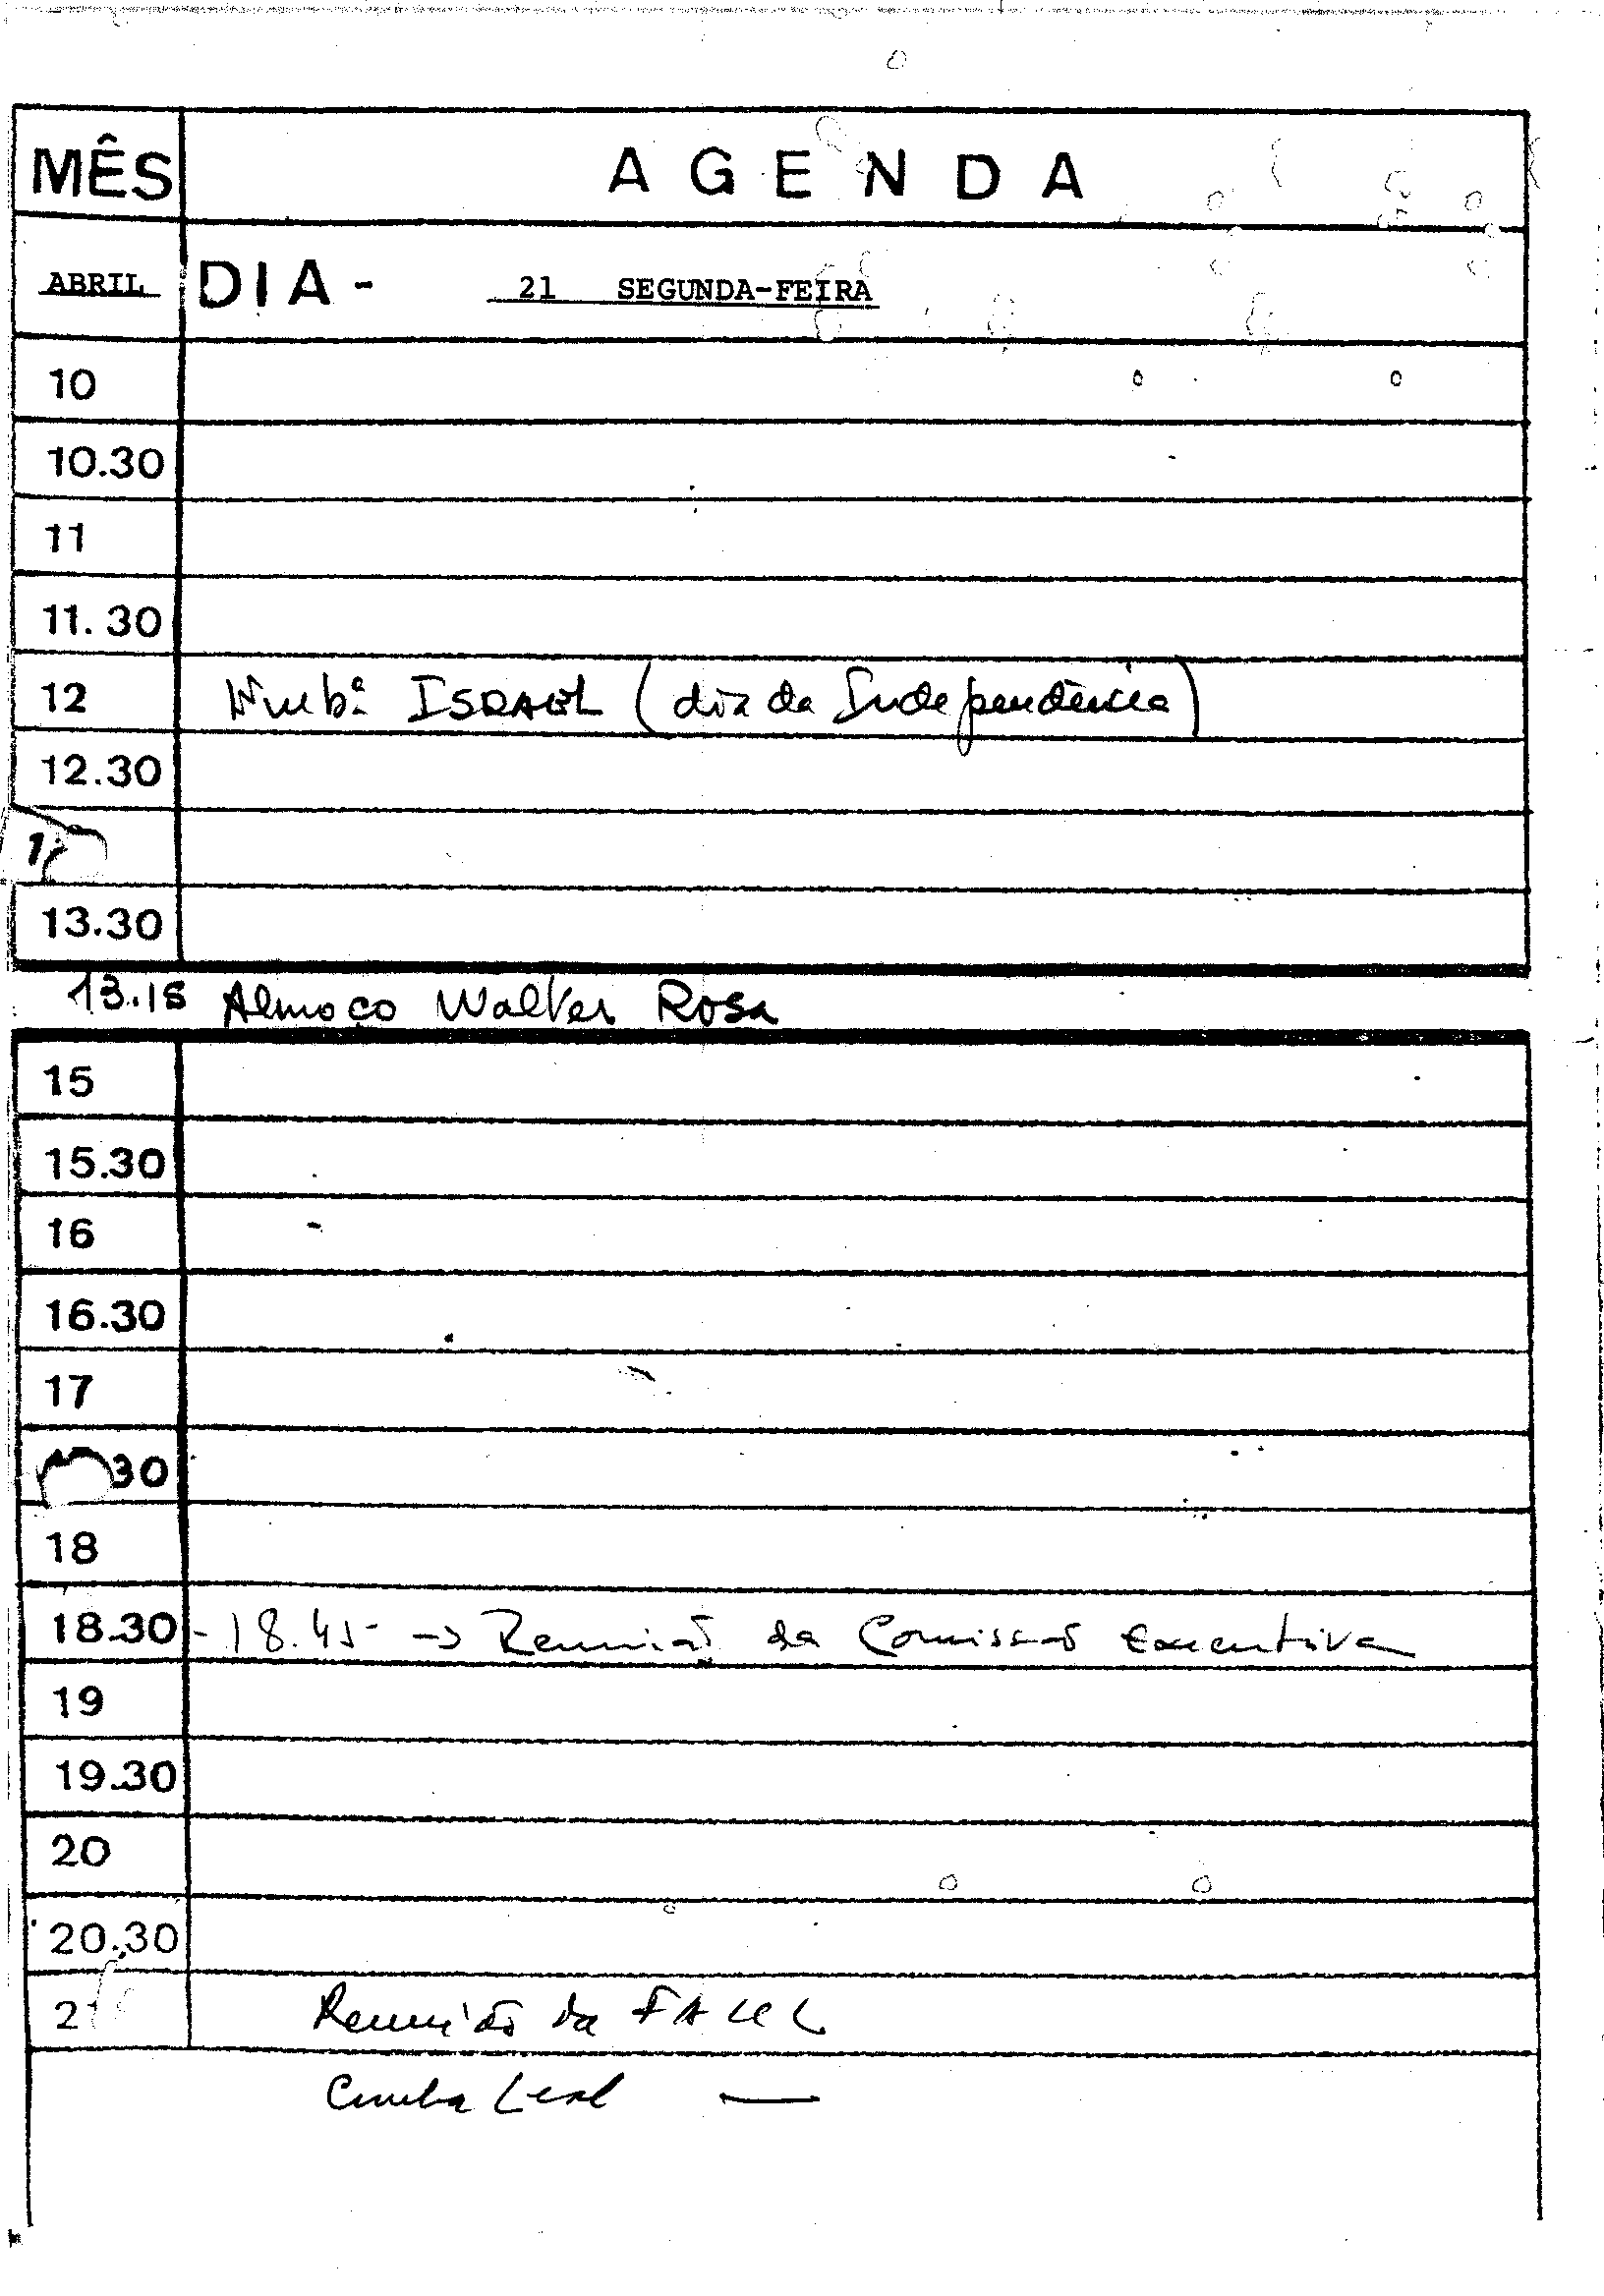 MÊS AGENDA
ABRIL DIA - 21 SEGUNDA-FEIRA
10
10.30
11
11.30
12 ISRAEL (dia da Independência)
12.30
13.30
13.15 Almoço Walter Rosa
15
15.30
16
16.30
17
30
18
18.30 - 18.45 -> Reunião da Comissão Executiva
19
19.30
20
20.30
2 Reunião da
Cunha Leal —